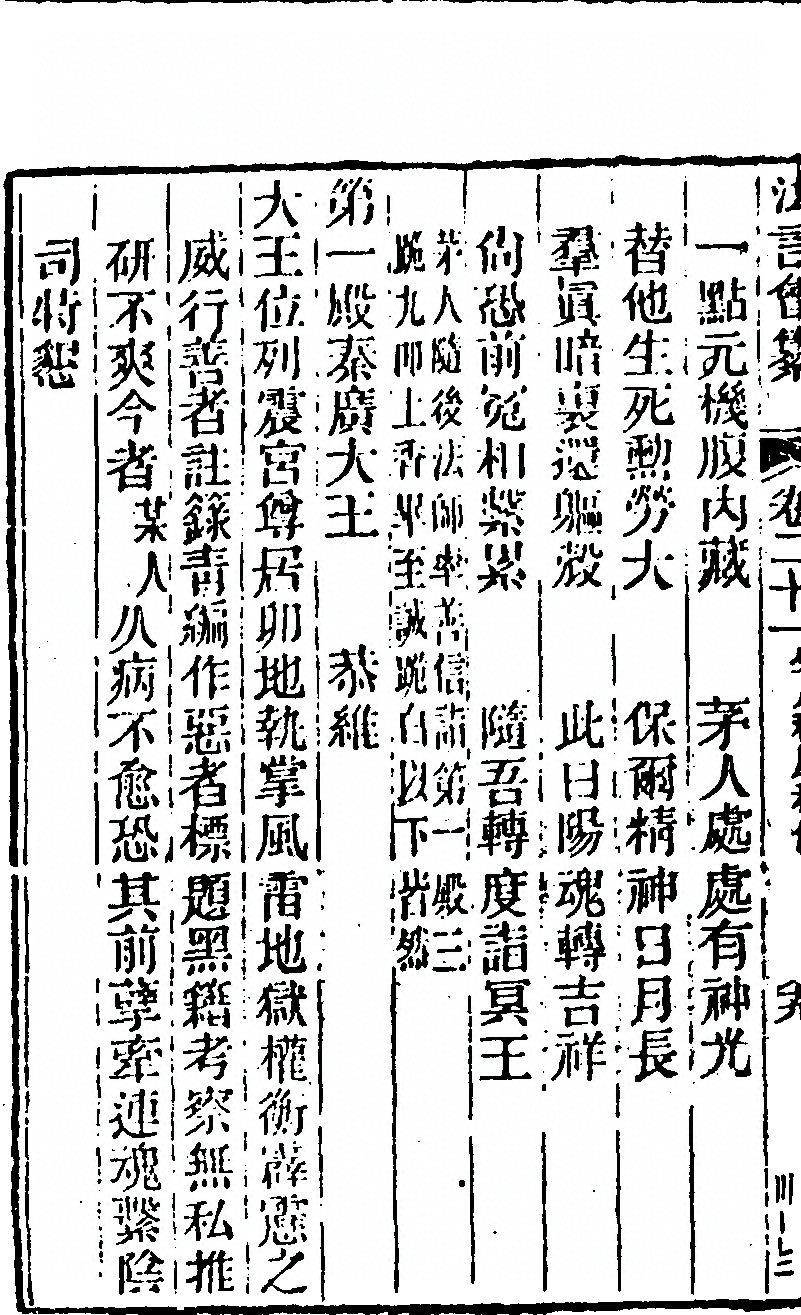 法言會纂 卷二十一 
一點元機腹內藏 茅人處處有神光
替他生死勲勞大 保爾精神日月長
羣眞暗裏還軀殼 此日陽魂轉吉祥
倘恐前冤相縈累 隨吾轉度詣冥王
茅人隨後法師率善信詣第一殿三
跪九叩上香畢至誠跪白以下皆然
第一殿秦廣大王 恭維
大王位列震宮尊居卯地執掌風雷地獄權衡霹靂之
威行善者註錄靑編作惡者標題黑籍考察無私推
研不爽今者某人久病不愈恐其前孽牽連魂繫陰
司特懇